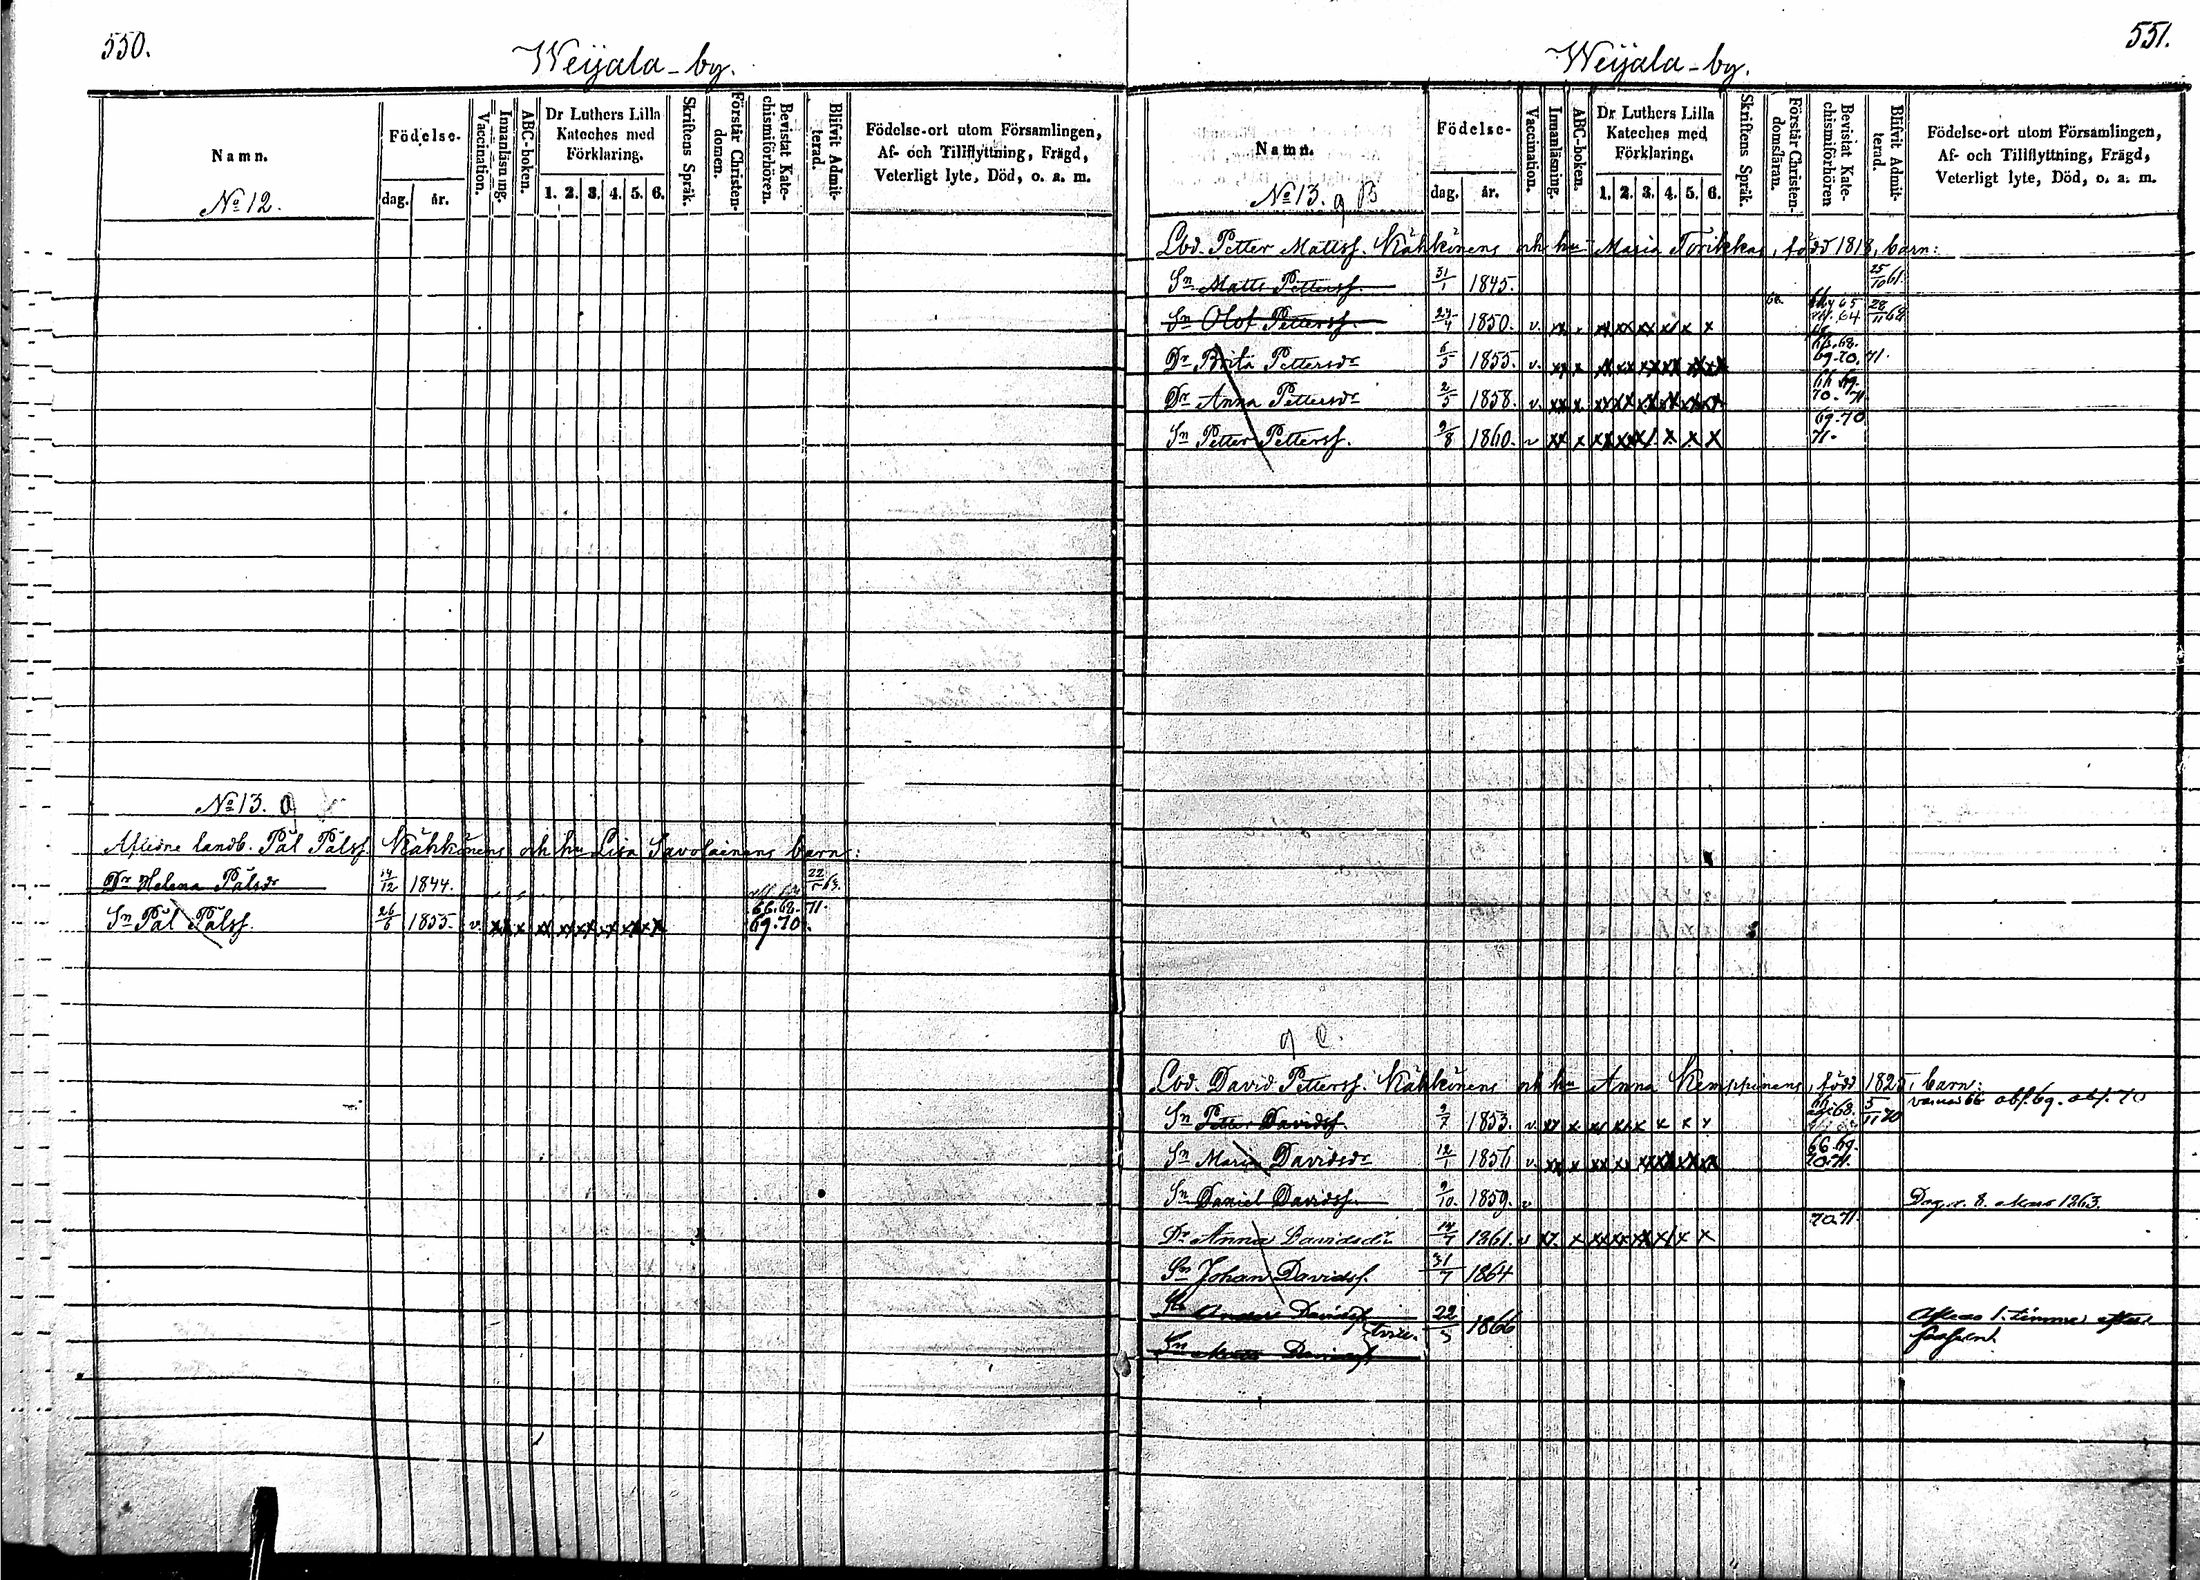 550.
Weijala-by.
Namn.
Födelse-
dag.
år.
Vaccination.
Innanläsning.
ABC-boken.
Dr Luthers Lilla
Kateches med
Förklaring.
1. 2. 3. 4. 5. 6.
Skriftens Språk.
Förstår Christen-
domen.
Bevistat Kate-
chismiförhören.
Blifvit Admit-
terad.
Födelse-ort utom Församlingen,
Af- och Tillflyttning, Frägd,
Veterligt lyte, Död, o. a. m.
No 12.
No 13. a
Aflidne landb. Pål Pålsf. Nähkönens och hu Lisa Savolainens barn:
Dr Helena Pålsdr 14/12 1844. 22/5 63.
66. 68. 71.
Sn Pål Pålsf. 26/6 1855. v. 69. 70.
551.
Weijala-by.
Namn.
Födelse-
dag.
år.
Vaccination.
Innanläsning.
ABC-boken.
Dr Luthers Lilla
Kateches med
Förklaring.
1. 2. 3. 4. 5. 6.
Skriftens Språk.
Förstår Christen-
domsläran.
Bevistat Kate-
chismiförhören
Blifvit Admit-
terad.
Födelse-ort utom Församlingen,
Af- och Tillflyttning, Frägd,
Veterligt lyte, Död, o. a. m.
No 13. a B
Lod. Petter Mattsf. Nähkönens och hu Maria Torikkas, född 1818, barn:
Sn Matts Pettersf. 31/1 1845. 25/10 61.
Sn Olof Pettersf. 1850. v. x x x 64 28/11 68
68.
Dr Brita Pettersdr 6/5 1855. v. xx x xx xx xx xx xx xx 69. 70. 71.
66 69.
Dr Anna Pettersdr 2/5 1858. v. xx x xx xx xx xx xx xx 70. 71
69. 70
Sn Petter Pettersf. 9/8 1860. v xx x xx xx x x x x 71.
a C.
Lod. David Pettersf. Nähkönens och hu Anna Kemppinens, född 1825, barn:
Sn Petter Davidsf. 9/7 1853. v. xx x 68. 5/11 70 abs. 69. abs. 70
66 69.
Sn Maria Davidsdr 12/1 1856 v. xx x xx xx xx xx xx xx 70. 71.
Sn Daniel Davidsf. 9/10. 1859. v 8. Mars 1863.
70. 71
Dr Anna Davidsdr 14/7 1861. v xx x xx xx xx x x x
Sn Johan Davidsf. 31/7 1864
Sn Anders Davidsf 22/3 1866 1. timme efter
Sn Davidsf